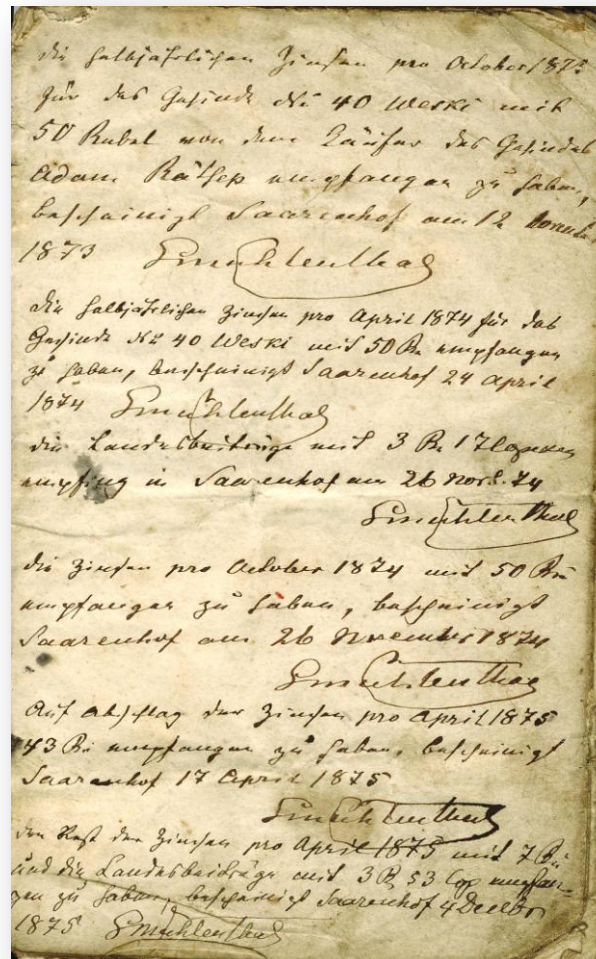 die halbjährlichen Zinsen pro October 1873
für das Gesinde № 40 Weski mit
50 Rubel von dem Käufer des Gesindes
Adam Rätsep empfangen zu haben,
bescheinigt Saarenhof am 12
1873 Emühlenthal
die halbjährlichen Zinsen pro April 1874 für das
Gesinde № 40 Weski mit 50 Ru empfangen
zu haben, bescheinigt Saarenhof 24 April
1874 Emühlenthal
die Landesbeiträge mit 3 Ru 17 Copeken
empfing in Saarenhof am 26 Novb. 74
Emühlenthal
die Zinsen pro October 1874 mit 50 Ru
empfangen zu haben, bescheinigt
Saarenhof am 26 November 1874
Emühlenthal
Auf Abschlag der Zinsen pro April 1875
43 Ru empfangen zu haben, bescheinigt
Saarenhof 17 April 1875
Emühlenthal
den Rest der Zinsen pro April 1875 mit 7 Ru
und die Landesbeiträge mit 3 R 53 Cop empfan-
gen zu haben, bescheinigt Saarenhof 4 Decbr
1875 Emühlenthal